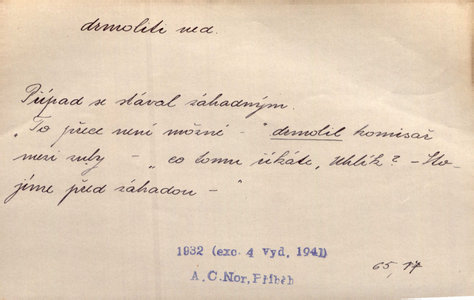 drmoliti ned.
Případ se stával záhadným.
„To přece není možné – " drmolil komisař
mezi zuby – „co tomu říkáte, Uhlík? – Sto-
jíme před záhadou – "
1932 (exc. 4 vyd. 1941)
A.C.Nor, Příběh
65, 17